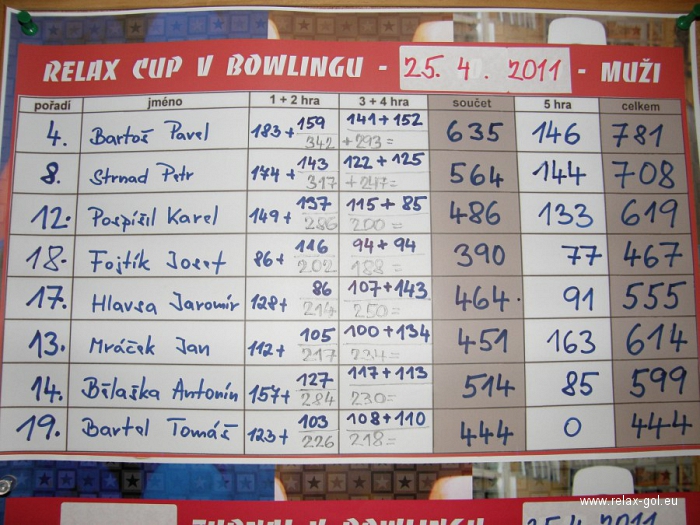 RELAX CUP V BOWLINGU - 25. 4. 2011 - MUŽI
pořadí jméno 1 + 2 hra 3 + 4 hra součet 5 hra celkem
4. Bartoš Pavel 183+ 159 342 141+152 +293= 635 146 781
8. Strnad Petr 174+ 143 317 122+125 +247= 564 144 708
12. Pospíšil Karel 149+ 137 286 115+85 200= 486 133 619
18. Fojtík Josef 86+ 116 202 94+94 188= 390 77 467
17. Hlavsa Jaromír 128+ 86 214 107+143 250= 464. 91 555
13. Mráček Jan 112+ 105 217 100+134 234= 451 163 614
14. Bělaška Antonín 157+ 127 284 117+113 230= 514 85 599
19. Bartel Tomáš 123+ 103 226 108+110 218= 444 0 444
www.relax-gol.eu
V BOWLINGU 25.4.2011